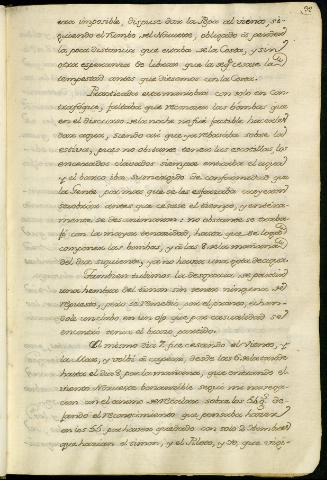 era imposible, dispuse dar la Popa al viento, si-
guiendo el Rumbo del Noroeste, obligado de
la poca distancia que estaba de la Costa, y sin
otra esperanza de librar que la de q.e cesase la
tempestad antes que diesemos con la Costa.
Practicada esta maniobra con solo en con-
trafogue, faltaba que reconocer las bombas que
en el discurso de la noche no fué factible hacerlas
dar agua, siendo asi que ya rebosaba sobre la
estiva, pues no obstante tener las escotillas, los
encerados clavados siempre entraba el agua
y el barco iba sumergido de conformidad que
la Gente por mas que se les esforzaba
antes que cesase el tiempo, y entera-
mente se desanimaron: no obstante se traba-
jó con la mayor tenacidad, hasta que se logró
componer las bombas, y á las 8 de la mañana
del dia siguiente, ya no hacia una gota de agua.
Tambien tubimos la desgracia de partirse
una hembra del timon sin tener ninguna de
repuesto, pero se remedió, por el pronto, echan-
dole un clabo en un ojo que por casualidad se
encontró tenia el barco partido.
El mismo dia 7, fue cesando el viento, y
la Mar, y volbí á capear, desde las 6 de la tarde
hasta el dia 8, por la mañana, que entrando el
viento Noroeste bonancible seguí mi navega-
cion con el animo de recalar sobre los 54 g.s de-
jando el reconocimiento que pensaba hacer
en los 56 por haver quedado con solo 2 hembras
que hacian el timon, y el Piloto, y Yo, que